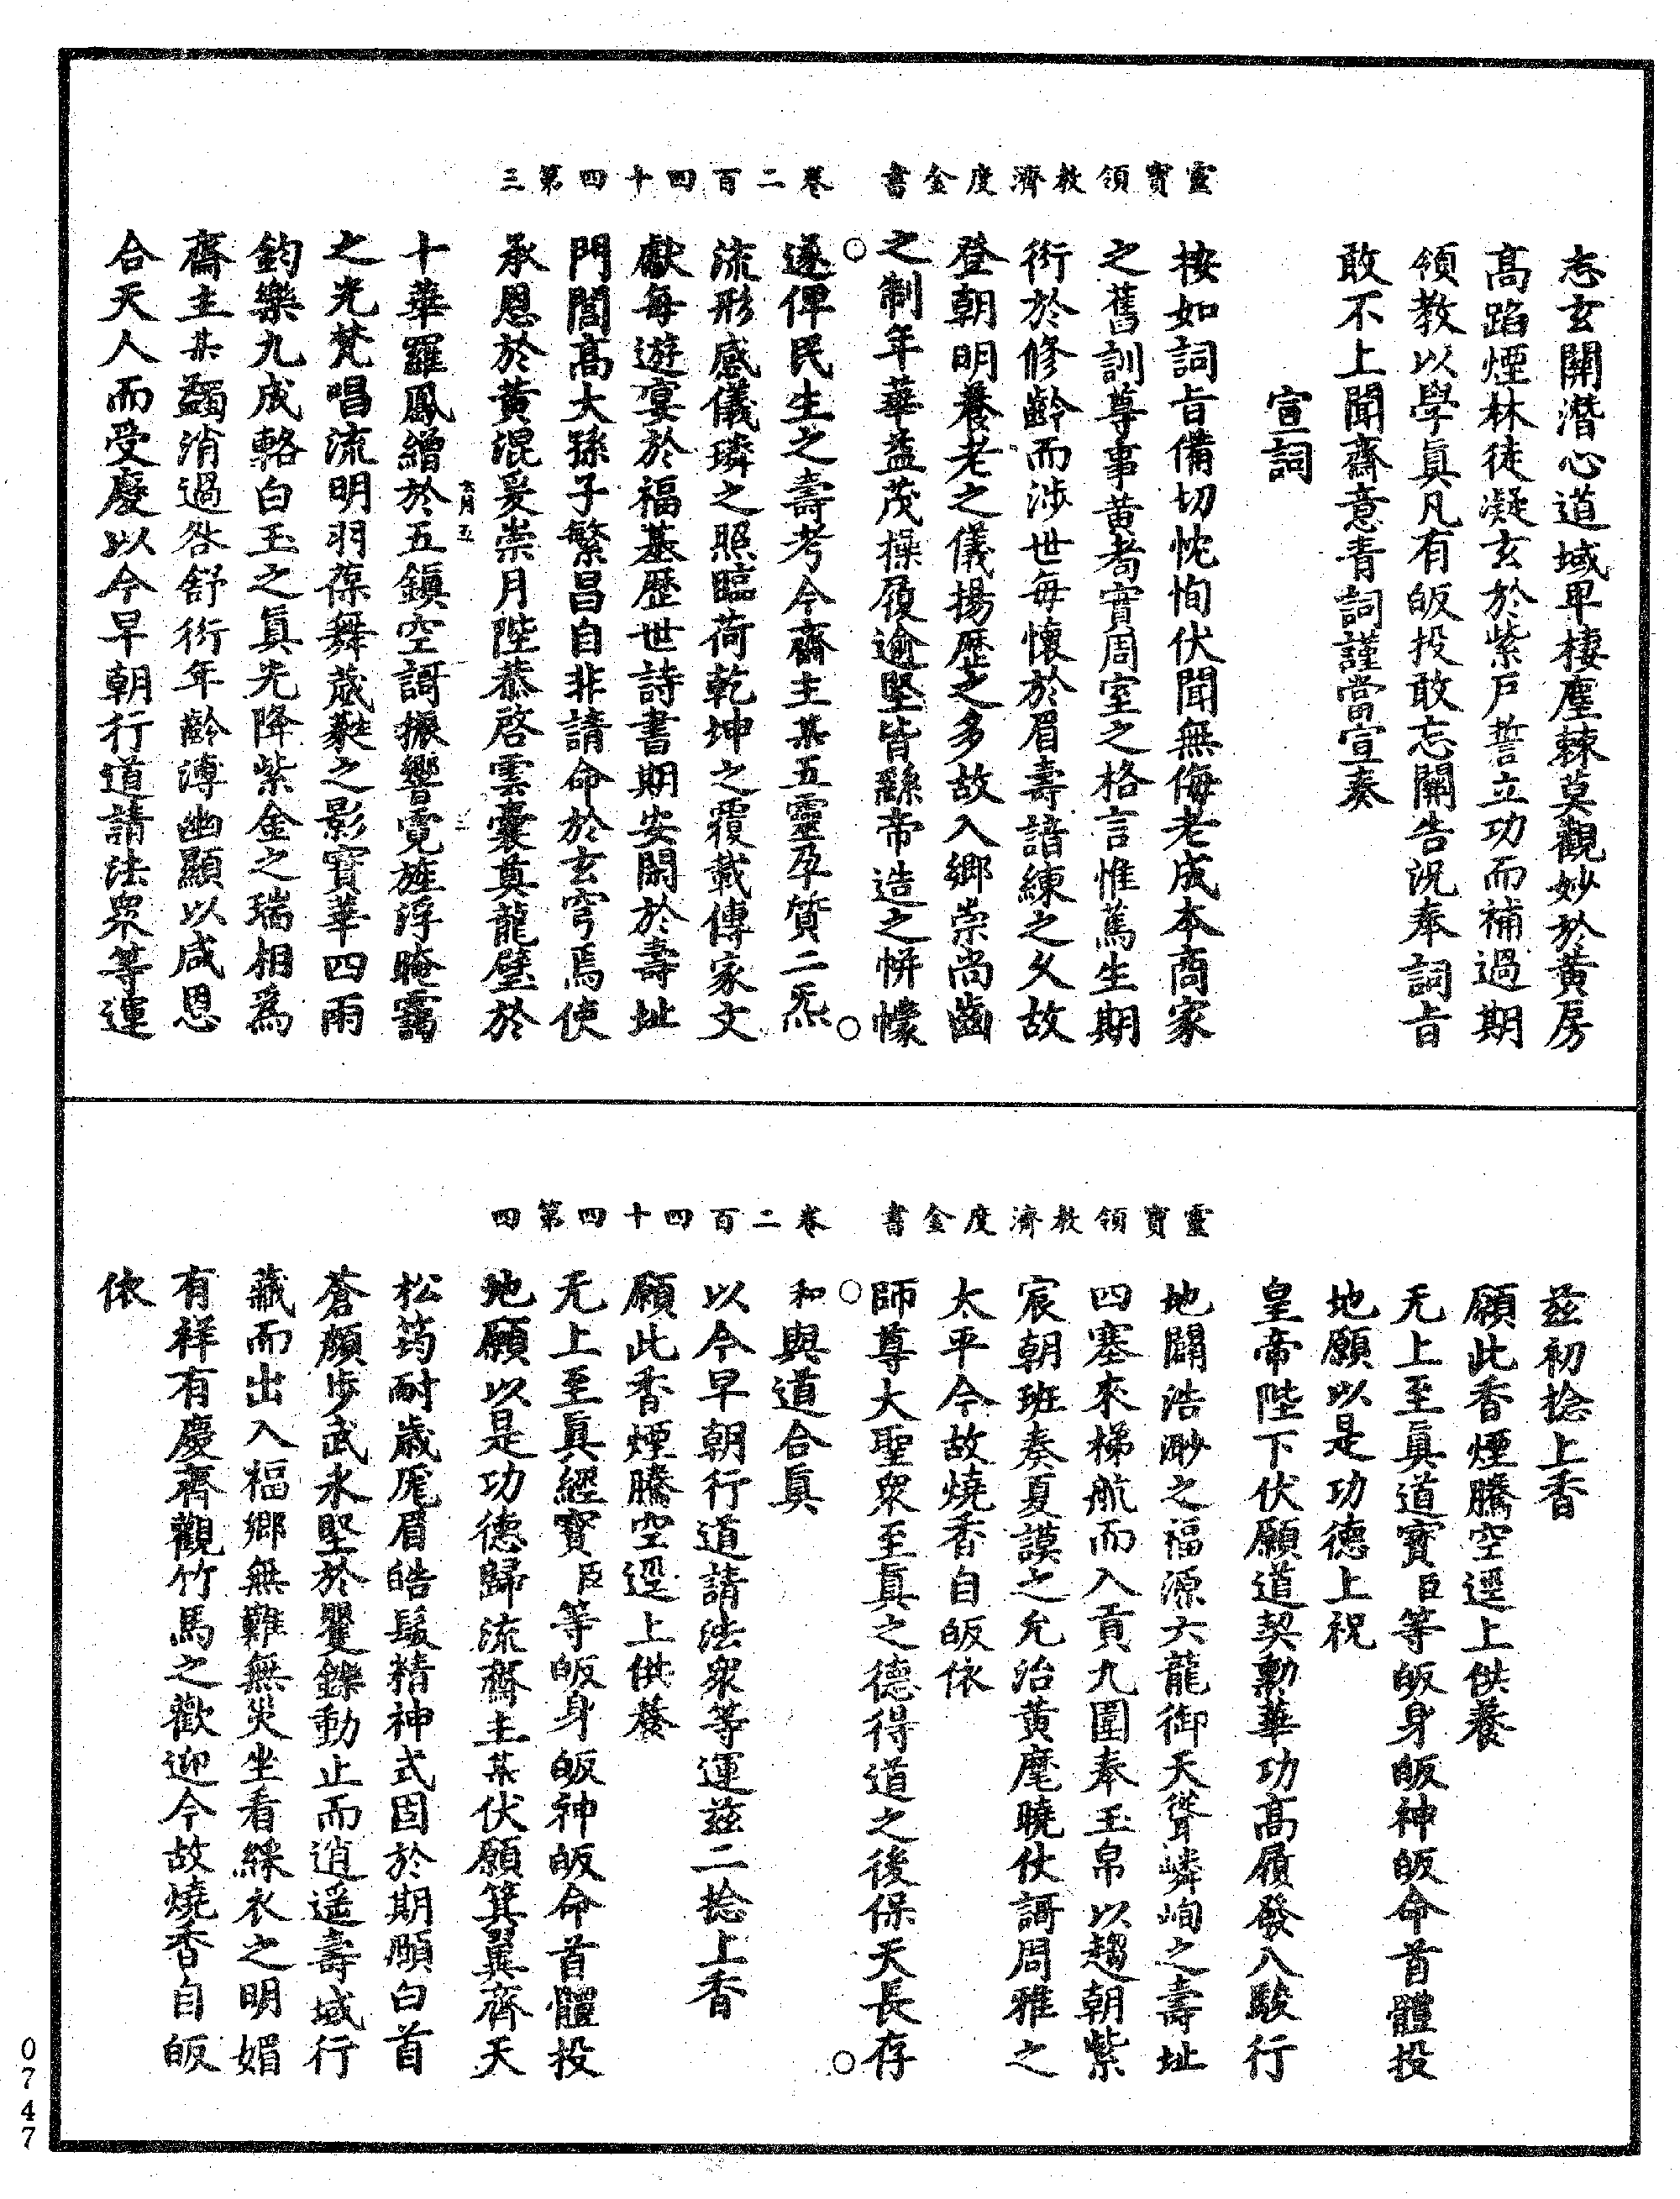 靈寶領教濟度金書　卷二百四十四第三
志玄關潛心道域卑棲塵棘莫觀妙於黃房
高蹈煙林徒凝玄於紫戶誓立功而補過期
領教以學真凡有皈投敢忘關告況奉詞旨
敢不上聞齋意青詞謹當宣奏
宣詞
按如詞旨備切忱恂伏聞無侮老成本商家
之舊訓尊事黃耇實周室之格言惟篤生期
衍於修齡而涉世每懷於眉壽諳練之久故
登朝明養老之儀揚歷之多故入鄉崇尚齒
之制年華益茂操履逾堅皆繇帝造之帡幪
遂俾民生之壽考今齋主某五靈孕質二炁
流形感儀璘之照臨荷乾坤之覆載傳家文
獻每遊宴於福基歷世詩書期安閑於壽址
門閭高大孫子繁昌自非請命於玄穹焉使
承恩於黃混爰崇月陛恭啓雲囊奠龍璧於
十華羅鳳繒於五鎮空謌振響霓旌浮晻靄
之光梵唱流明羽葆舞葳蕤之影寶華四雨
鈞樂九成輅白玉之真光降紫金之瑞相爲
齋主某蠲消過咎舒衍年齡溥幽顯以咸恩
合天人而受慶以今早朝行道請法衆等運
靈寶領教濟度金書　卷二百四十四第四
茲初捻上香
願此香煙騰空逕上供養
无上至真道寶臣等皈身皈神皈命首體投
地願以是功德上祝
皇帝陛下伏願道契勳華功高履發八駿行
地闢浩渺之福源六龍御天聳嶙峋之壽址
四塞來梯航而入貢九圍奉玉帛以趨朝紫
宸朝班奏夏謨之允治黃麾曉仗謌周雅之
太平今故燒香自皈依
師尊大聖衆至真之德得道之後保天長存
和與道合真
以今早朝行道請法衆等運茲二捻上香
願此香煙騰空逕上供養
无上至真經寶臣等皈身皈神皈命首體投
地願以是功德歸流齋主某伏願箕翼齊天
松筠耐歲厖眉皓髮精神式固於期頤白首
蒼顏步武永堅於矍鑠動止而逍遥壽域行
藏而出入福鄉無難無災坐看綵衣之明媚
有祥有慶齊觀竹馬之歡迎今故燒香自皈
依
0747